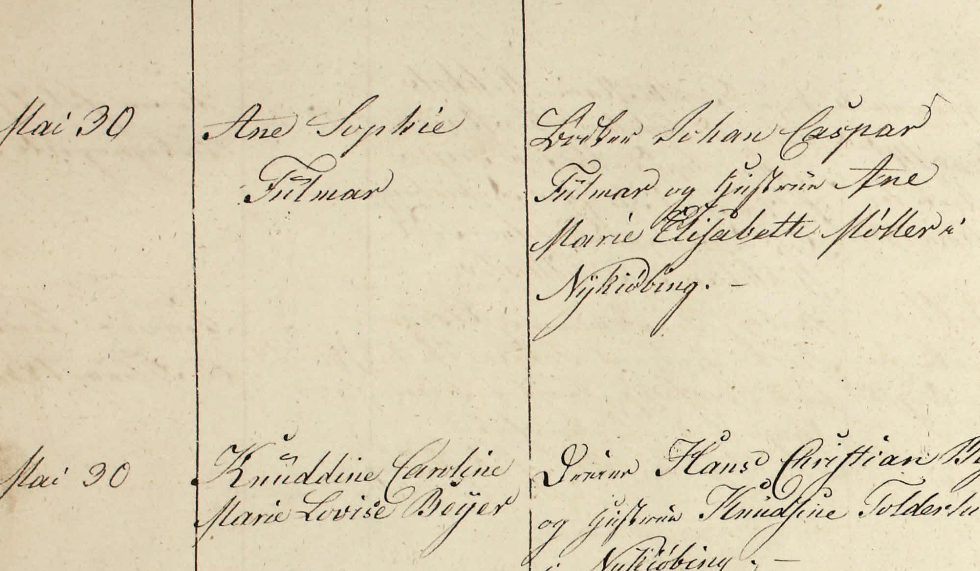 Mai 30
Ane Sophie
Fulmar
Bödker Johan Caspar
Fulmar og Hustrue Ane
Marie Elisabeth Møller i
Nÿkiöbing. –
Mai 30
Knuddine Caroline
Marie Lovise Beÿer
Hans Christian
og Hustrue Knudsine
i Nykiöbing. –